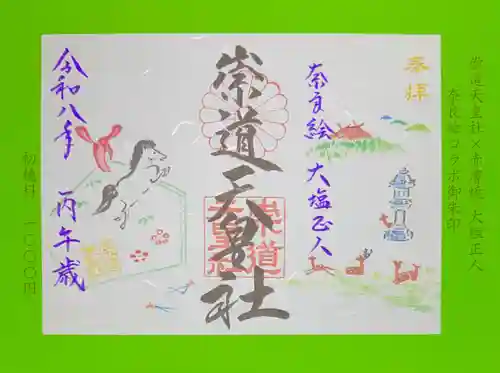 崇道天皇社×赤膚焼 大塩正人
奈良絵コラボ御朱印
奉拝
奈良絵 大塩正人
崇道天皇社
令和八年 丙午歳
初穂料 一〇〇〇円